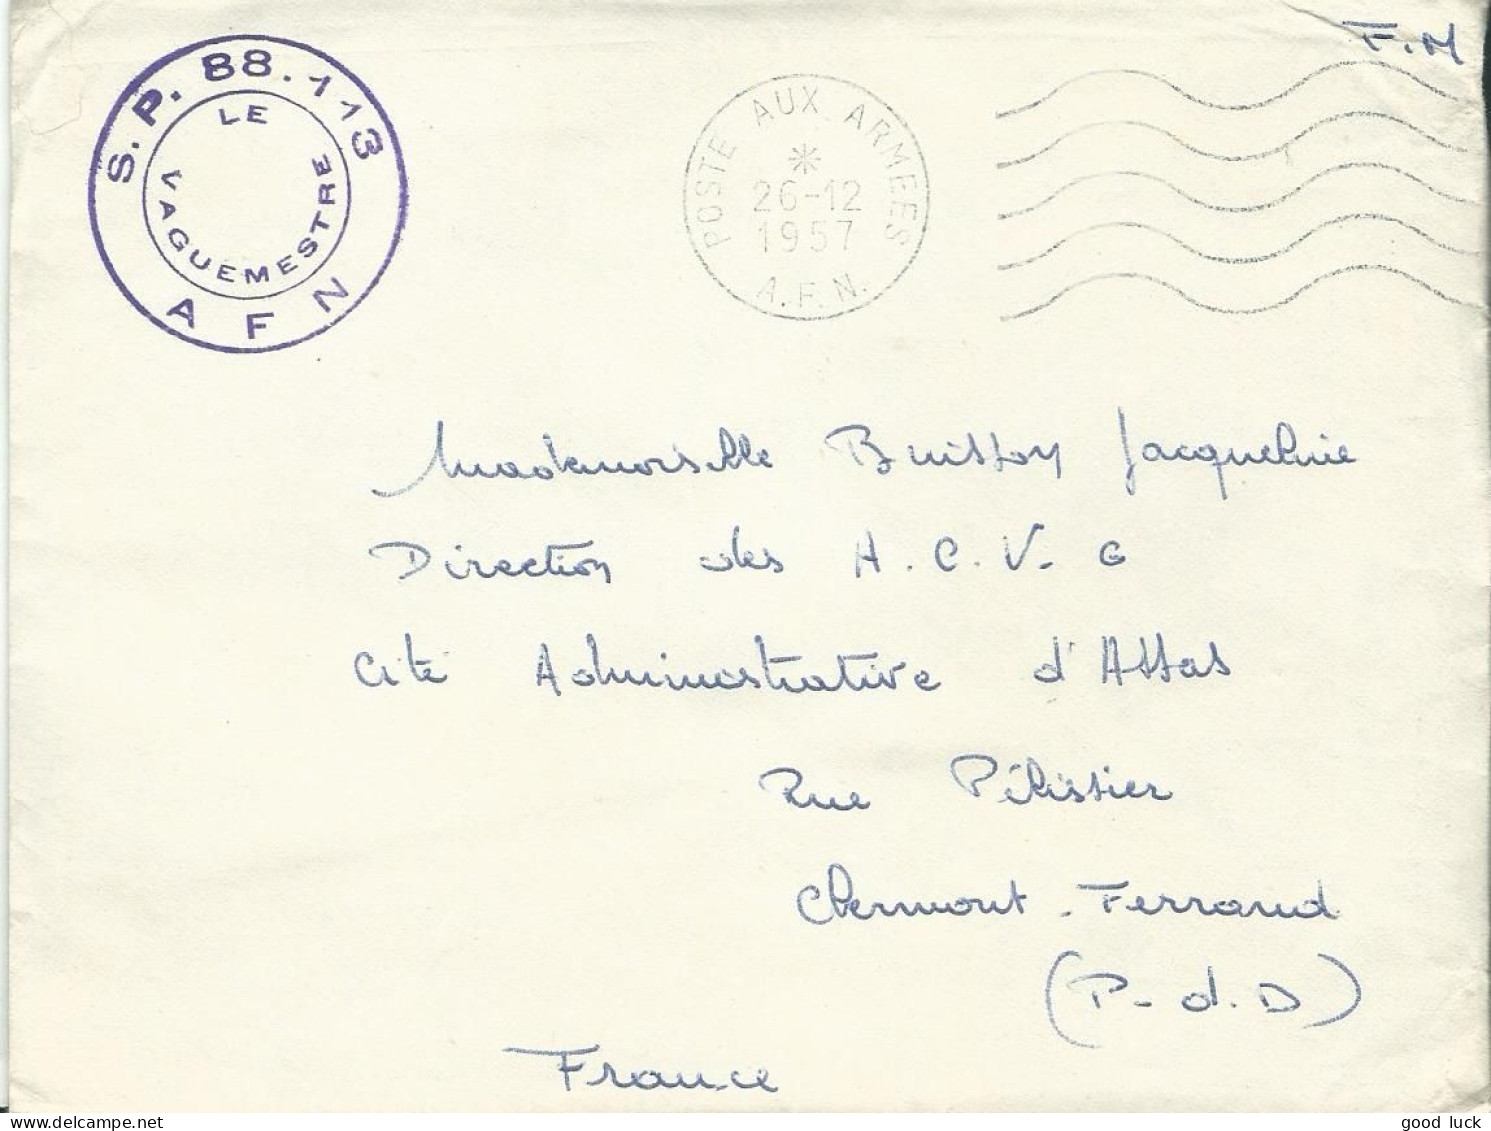 F.M
S.P. 88.113
LE
VAGUEMESTRE
A F N
POSTE AUX ARMEES
26-12
1957
A.F.N.
Mademoiselle Buisson Jacqueline
Direction des A.C.V.G
Cité Administrative d'Assas
Rue Pélissier
Clermont-Ferrand
(P-d.D)
France
www.delcampe.net
good luck